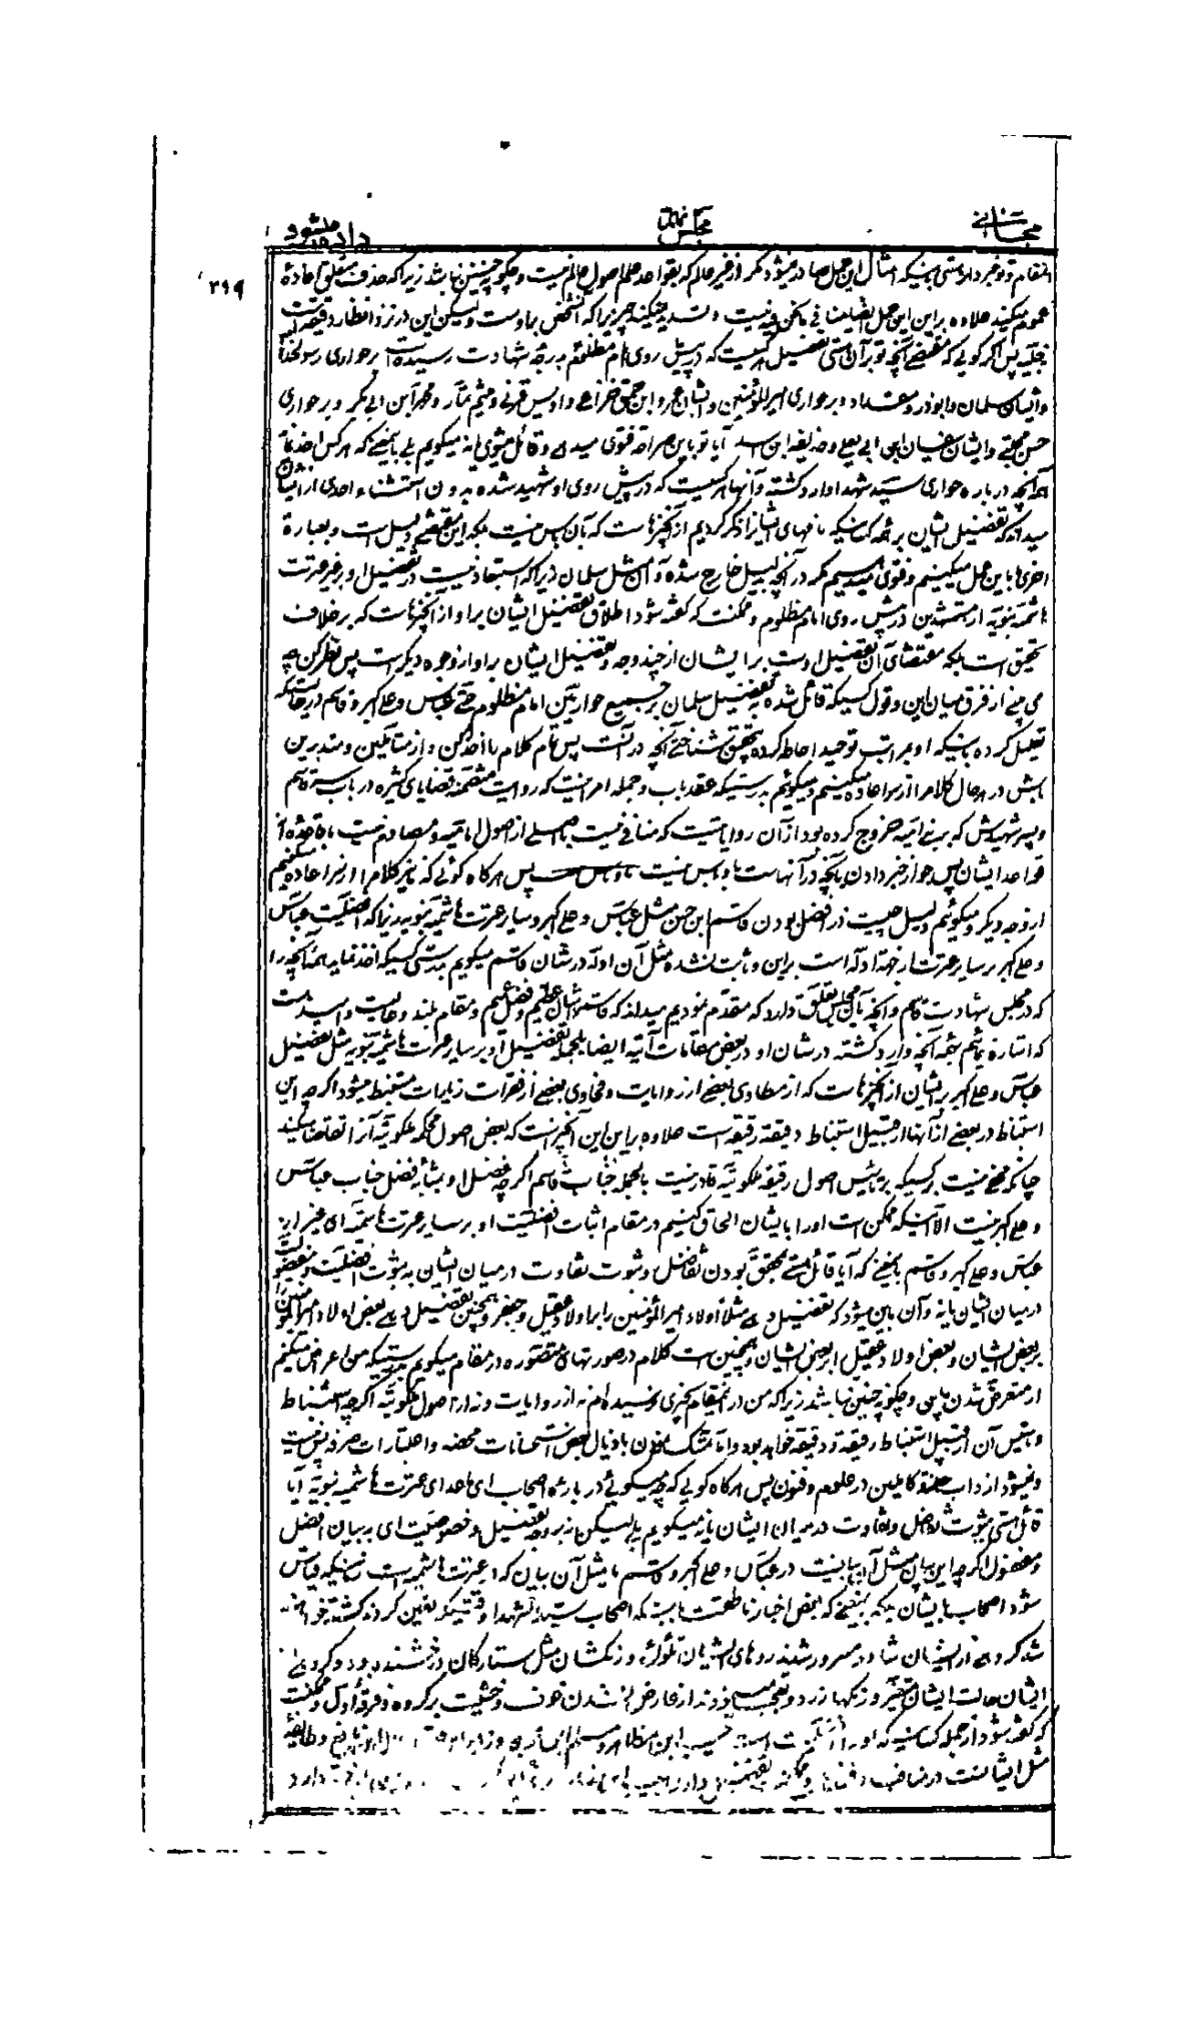 مجلس
۲۹۹
اینمقام و تو خبردار هستی باینکه امثال این حمل صادر نمیشود مگر از غیر عالم که بقواعد علم اصول عالم نیست و چگونه چنین نباشد زیرا که حذف متعلق افاده
عموم میکند علاوه براین این حمل ایضا فی
پس اگر گوئی که مقتضای آنچه تو برآن هستی تفضیل هر کسیست که در پیش روی امام مظلوم بدرجه شهادت رسیده است بر حواری رسولخدا
و ایشان سلمان و ابوذر و مقداد و بر حواری امیرالمؤمنین و ایشان عمرو ابن حمق خزاعی و اویس قرنی و میثم تمار و محمد ابن ابی بکر و بر حواری
حسن مجتبی و ایشان سفیان ابن ابی لیلی و حذیفه ابن اسید آیا تو باین صراحة فتوی میدهی و قائل میشوی یا نه میکویم بلی باینمعنی که هر کس اخذ نماید
آنچه درباره حواری سید شهدا وارد کشته و آنها هر کسیست که در پیش روی او شهید شده بدون استثناء احدی از ایشان
میداند که تفضیل ایشان بر همه کسانیکه نامهای ایشانرا ذکر کردیم از آنچیزهاست که بآن باس نیست بلکه این مقتضی دلیل است و بعبارة
اخری ما باین عمل میکنیم و فتوی میدهیم مگر در آنچه بدلیل خارج شده و آن مثل سلمان زیرا که استبعاد نیست در تفضیل او بر غیر عترت
هاشمیه نبویه از مستشهدین در پیش روی امام مظلوم و ممکنست که گفته شود اطلاق تفضیل ایشان بر او از آنچیزهاست که برخلاف
تحقیق است بلکه مقتضای آن تفضیل اوست بر ایشان از چند وجه و تفضیل ایشان بر او از وجوه دیگر است پس نظر کن چه
می بینی از فرق میان این و قول کسیکه قائل شده به تفضیل سلمان بر جمیع حواریین امام مظلوم حتی عباس و علی اکبر و قاسم در حالتیکه
تعلیل کرده باینکه او بمراتب توحید احاطه کرده تحقیق شناختی آنچه در آنست پس تمام کلام را اخذ کن و از متاملین و متدبرین
باش در هر حال کلام را از سر اعاده میکنیم و میکوئیم بدرستیکه عقد باب و جمله امر اینست که روایت متضمنه قضایای کثیره در باب قاسم
و پسر شهیدش که بر بنی امیه خروج کرده بود از آن روایاتیست که منافی نیست با اصلی از اصول امامیه و مصادم نیست با قاعده از
قواعد ایشان پس جواز خبر دادن بآنچه در آنهاست باو باس نیست پس هرگاه گوئی که نیز کلام را از سر اعاده میکنیم
از وجه دیگر و میکوئیم دلیل چیست در افضل بودن قاسم ابن حسن مثل عباس و علی اکبر و سایر عترت هاشمیه نبویه زیرا که افضلیت عباس
و علی اکبر بر سایر عترت از جهة ادله است براین و ثابت نشده مثل آن ادله در شان قاسم میکویم بدرستی کسیکه اخذ نماید همه آنچه را
که در مجلس شهادت قاسم و آنچه بآن مجلس تعلق دارد که مقدم نمودیم میداند که قاسم را شان عظیم و فضل عمیم و مقام بلند و عالیست
که اشاره نمائیم بهمه آنچه وارد کشته در شان او در بعض مقامات آتیه ایضا بالجمله تفضیل او بر سایر عترت هاشمیه نبویه مثل تفضیل
عباس و علی اکبر بر ایشان از آنچیزهاست که از مطاوی بعضی از روایات و فحاوی بعضی از فقرات زیارات مستنبط میشود اگرچه این
استنباط در بعضی از آنها از قبیل استنباط دقیقه رقیقه است علاوه براین این آنچیز است که بعض اصول محکمه ملکوتیه آنرا تقاضا میکند
چنانکه مخفی نیست بر کسیکه بر تاسیس اصول رقیقه ملکوتیه قادر نیست بالجمله جناب قاسم اگرچه فضل او بمثابه فضل جناب عباس
و علی اکبر نیست الا اینکه ممکن است او را بایشان الحاق کنیم در مقام اثبات افضلیت او بر سایر عترت هاشمیه ای غیر از
عباس و علی اکبر و قاسم باینمعنی که آیا قائل هستی بمحقق بودن تفاضل و ثبوت تفاوت درمیان ایشان به ثبوت افضلیت و مفضولیت
درمیان ایشان یا نه و آن باین میشود که تفضیل دهی مثلا اولاد امیرالمؤمنین را بر اولاد عقیل و جعفر و همچنین تفضیل دهی بعض اولاد امیرالمؤمنین را
بر بعض ایشان و بعض اولاد عقیل را بر بعض ایشان و همچنین است کلام در صورتهای متصوره در مقام میکویم بدرستیکه من اعراض میکنم
از متعرض شدن باین و چگونه چنین نباشد زیرا که من در اینمقام بچیزی نرسیده ام نه از روایات و نه از اصول ملکوتیه اگرچه استنباط
و تاسیس آن از قبیل استنباط رقیقه و دقیقه خواهد بود و اما تمسک نمودن باذیال بعض استحسانات محضه و اعتبارات صرفه پس نیست
و نمیشود از داب کاملین در علوم و فنون پس هرگاه گوئی که چه میگوئی درباره اصحاب ای ماعدای عترت هاشمیه نبویه آیا
قائل هستی بثبوت تفاضل و تفاوت درمیان ایشان یا نه میکویم بلی لیکن نه بر وجه تفضیل و خصوصیت ای به بیان افضل
و مفضول اگرچه این بیان مثل آن بیانیست در عباس و علی اکبر و قاسم یا مثل آن بیان که در عترت هاشمیه است
شود اصحاب بایشان بلکه باینمعنی که بعض اخبار ناطقست باینکه اصحاب سید الشهدا وقتیکه یقین کردند کشته خواهند
شد گروهی از ایشان شاد و مسرور شدند روهای ایشان و رنگشان مثل ستارگان درخشنده بود و گروهی
ایشان حالت ایشان متغیر و رنگها زرد و تعجب میکردند از عارض نشدن خوف و خشیت بر گروه و فرقه اول و ممکنست
که گفته شود از جمله کسانیکه حبیب ابن مظاهر و مسلم
مثل ایشانست در مناقب